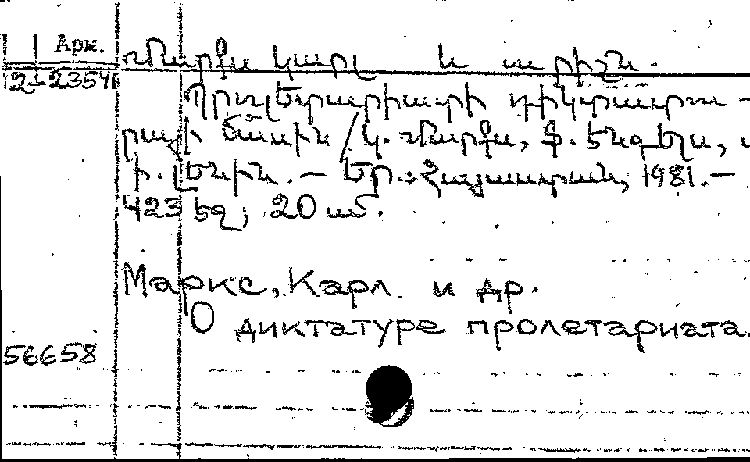 Арм.
Մարքս Կարլ և ուրիշն.
2-2354
Պրոլետարիատի դիկտատու-
րայի մասին / Կ. Մարքս, Ֆ. Էնգելս,
Վ. Լենին. – Եր.: Հայաստան, 1981. –
423 էջ; 20 սմ.
Маркс, Карл. и др.
О диктатуре пролетариата.
56658